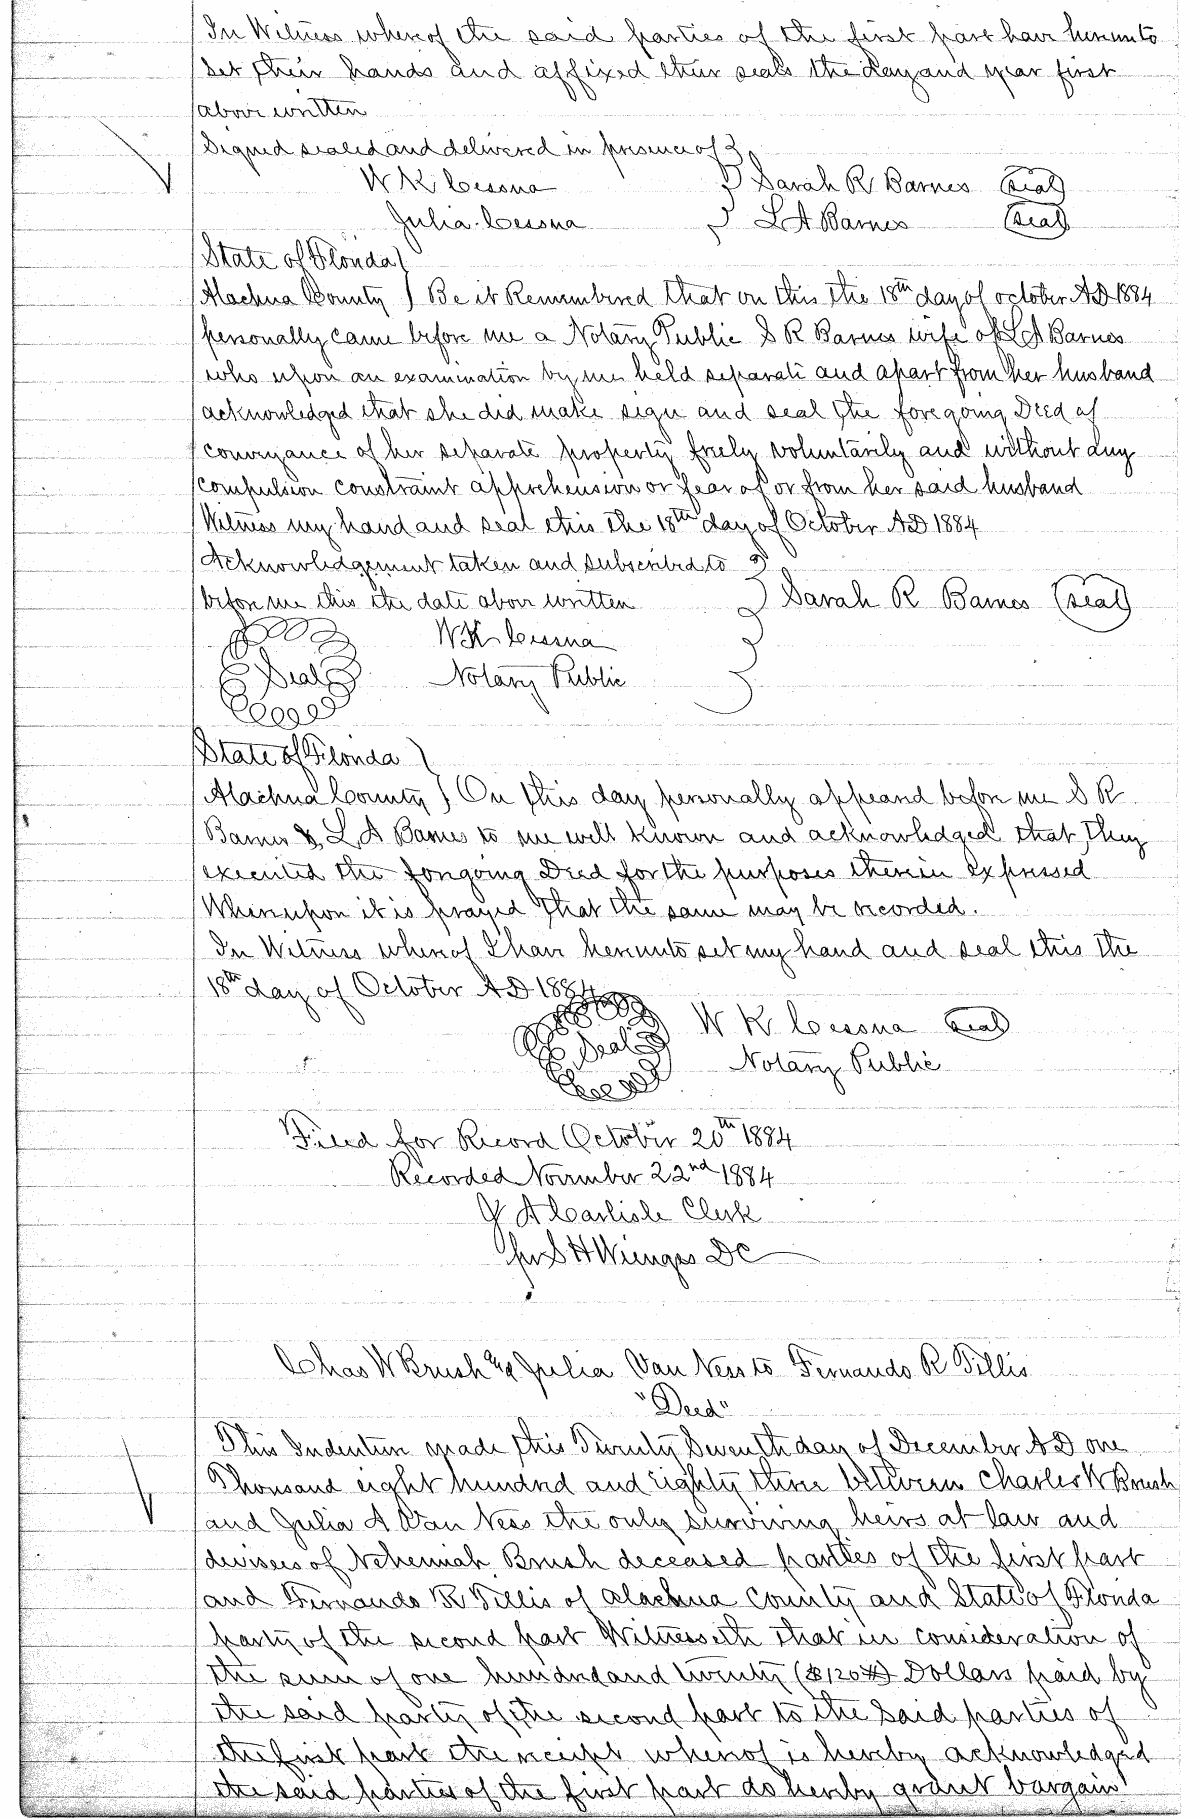 In Witness whereof the said parties of the first part have hereunto
set their hands and affixed their seals the day and year first
above written
Signed sealed and delivered in presence of
W K Cessna } Sarah R Barnes (seal)
Julia Cessna } L A Barnes (seal)
State of Florida )
Alachua County ) Be it Remembered that on this the 18th day of october A.D. 1884
personally came before me a Notary Public S R Barnes wife of L A Barnes
who upon an examination by me held separate and apart from her husband
acknowledged that she did make sign and seal the foregoing Deed of
conveyance of her separate property freely voluntarily and without any
compulsion constraint apprehension or fear of or from her said husband
Witness my hand and seal this the 18th day of October A.D 1884
Acknowledgement taken and subscribed to }
before me this the date above written } Sarah R Barnes (seal)
W K Cessna
Seal Notary Public
State of Florida )
Alachua County ) On this day personally appeared before me S R
Barnes & L A Barnes to me well known and acknowledged that they
executed the foregoing Deed for the purposes therein expressed
Whereupon it is prayed that the same may be recorded.
In Witness whereof I have hereunto set my hand and seal this the
18th day of October A D 1884
Seal W K Cessna (seal)
Notary Public
Filed for Record October 20th 1884
Recorded November 22nd 1884
J A Carlisle Clerk
per S H Wienges DC
Chas W Brush & Julia Van Ness to Fernando R Tillis
"Deed"
This Indenture made this Twenty Seventh day of December A D one
Thousand eight hundred and eighty three between Charles W Brush
and Julia A Van Ness the only surviving heirs at law and
devisees of Nehemiah Brush deceased parties of the first part
and Fernando R Tillis of Alachua County and State of Florida
party of the second part Witnesseth that in consideration of
the sum of one hundred and twenty ($120) Dollars paid by
the said party of the second part to the said parties of
the first part the receipt whereof is hereby acknowledged
the said parties of the first part do hereby grant bargain